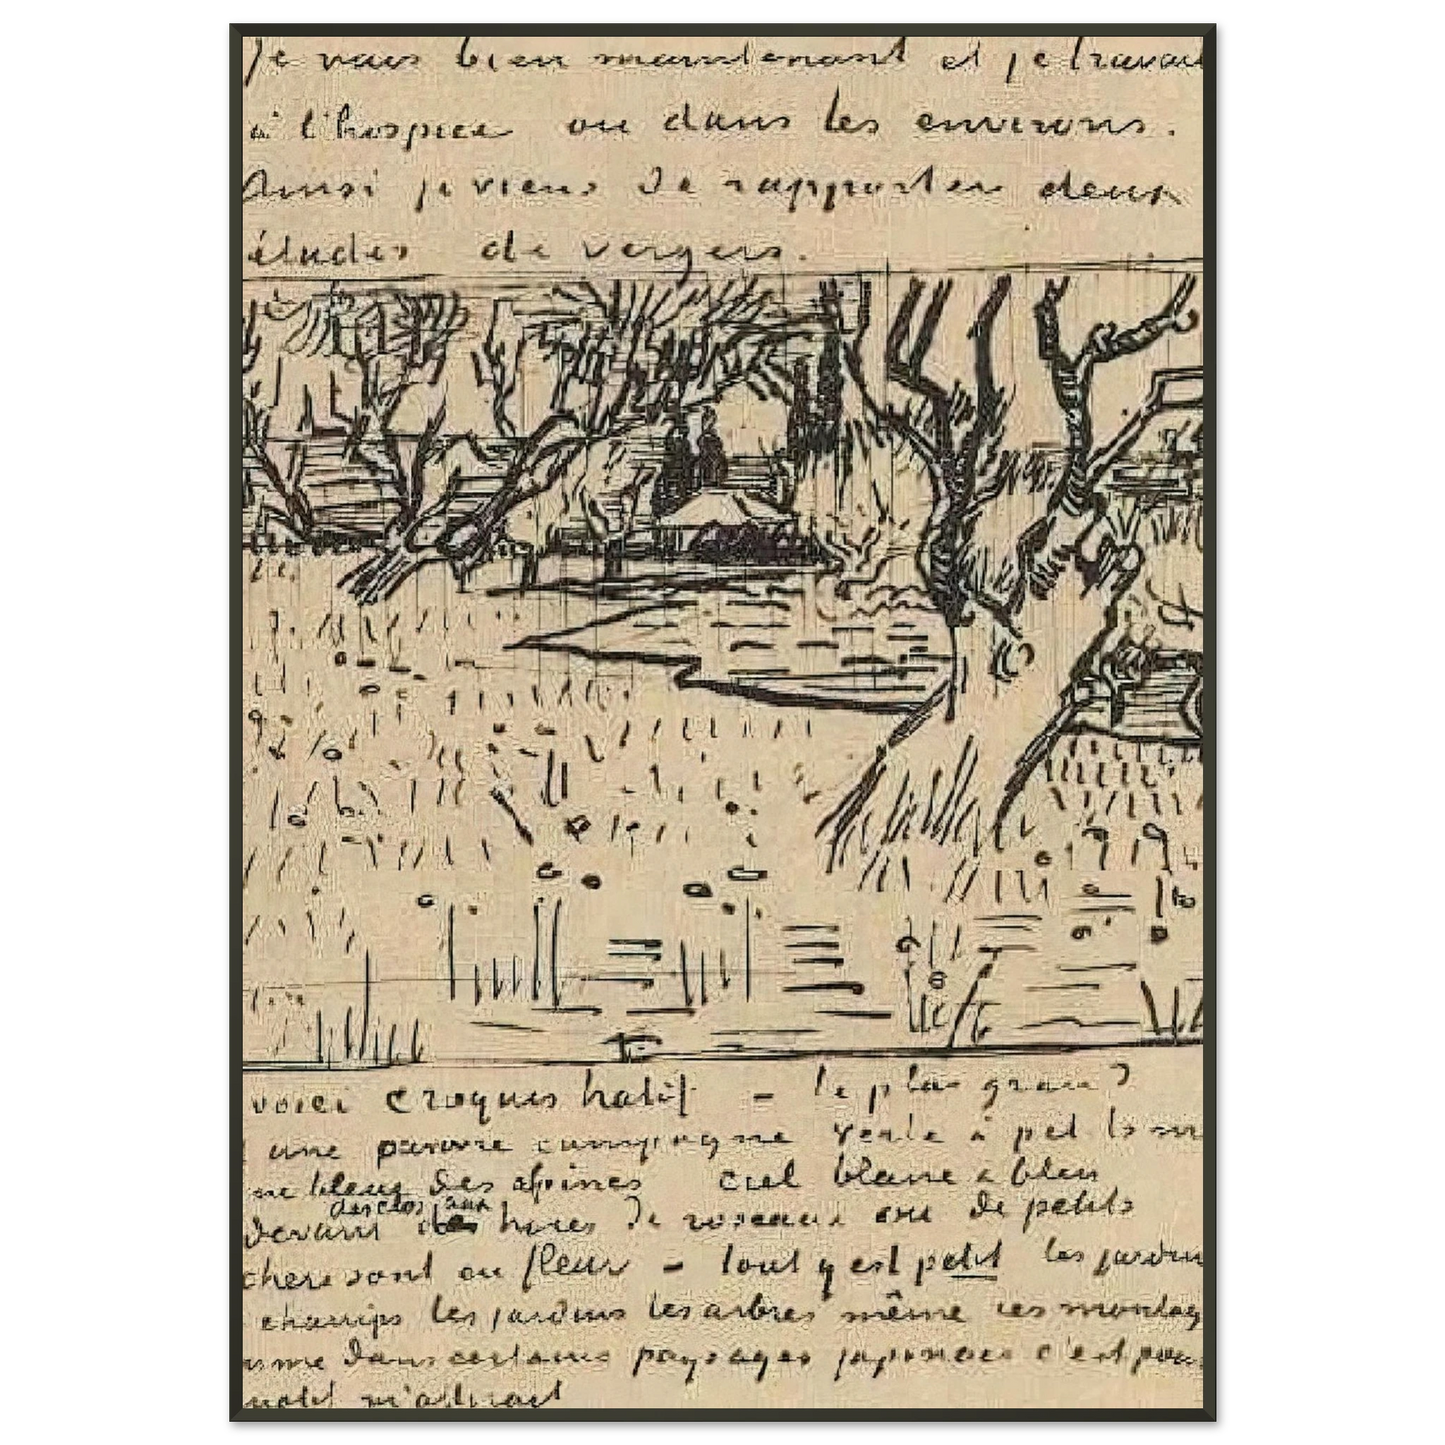 Je vais bien maintenant et je travail
à l'hospice ou dans les environs.
Ainsi je viens de rapporter deux
études de vergers.
voici croquis hatif - le plus grand
une pauvre campagne verte à pet
bleus des alpines ciel blanc & bleu
des clos aux
devant haies de roseaux ou de petits
sont en fleur - tout y est petit les jardin
champs les jardins les arbres même ces montag
dans certains paysages japonais c'est pou
motif m'attirait